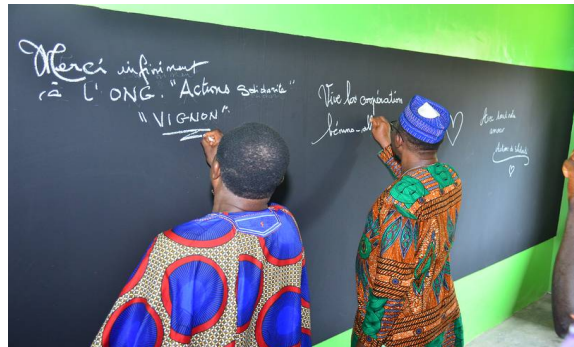 Merci infiniment
à l'ONG. "Actions Solidarité"
"VIGNON".
Vive la coopération
bénino-all